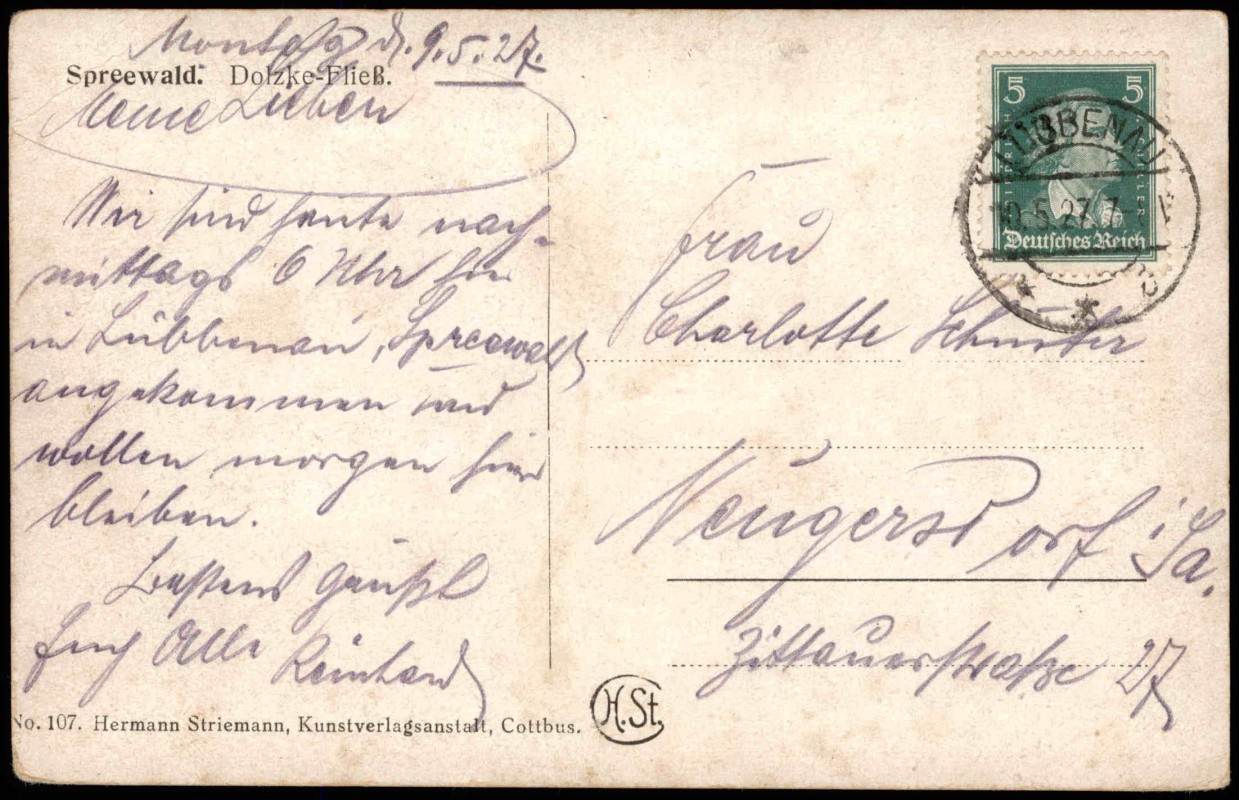 Montag d. 9.5.27.
Spreewald. Dolzke-Fließ.
Meine Lieben
Wir sind heute nach-
mittags 6 Uhr hier
in Lübbenau, Spreewald
angekommen und
wollen morgen hier
bleiben.
Bestens grüßt
Euch Alle Reinhard
No. 107. Hermann Striemann, Kunstverlagsanstalt, Cottbus.
H.St.
5 5
Deutsches Reich
LÜBBENAU
10.5.27.7-
Frau
Charlotte Schuster
Neugersdorf i/Sa.
Zittauerstraße 27